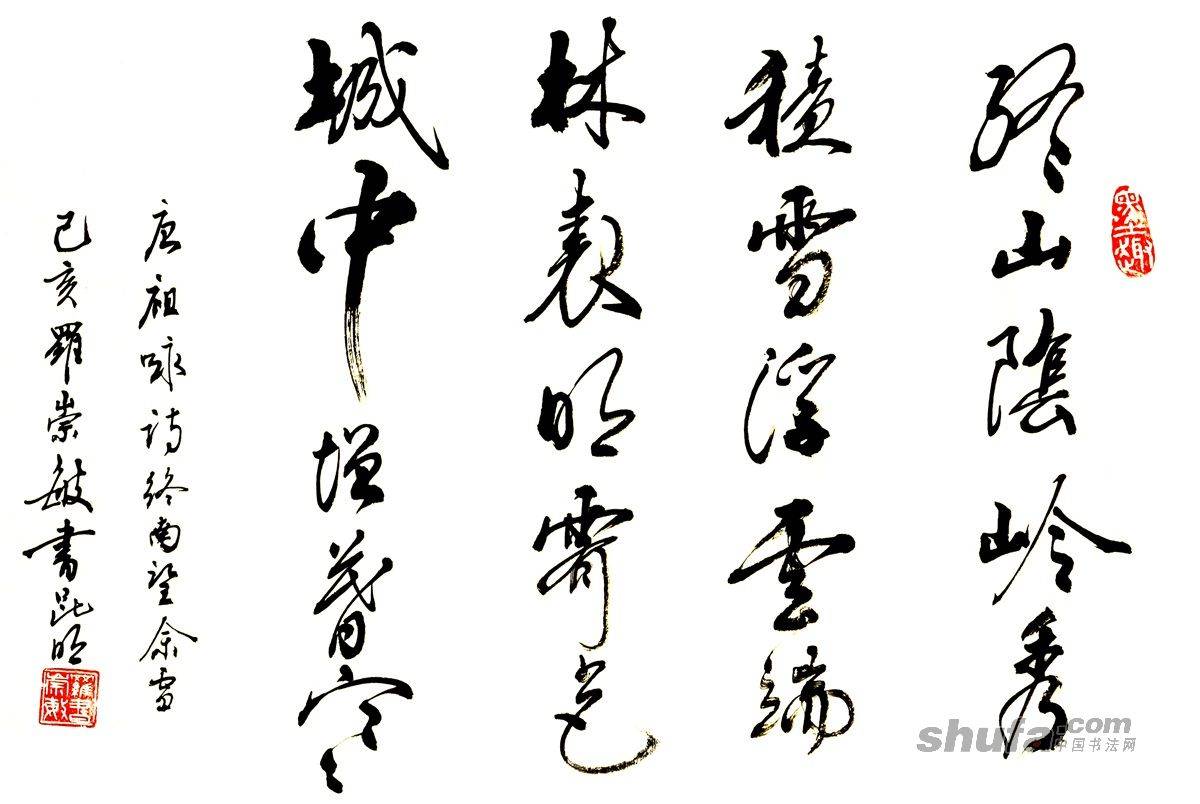 終山陰岭秀
積雪浮雲端
林表明霁色
城中增暮寒
唐祖咏诗終南望余雪
己亥羅崇敏書昆明
shufa.com
中国书法网